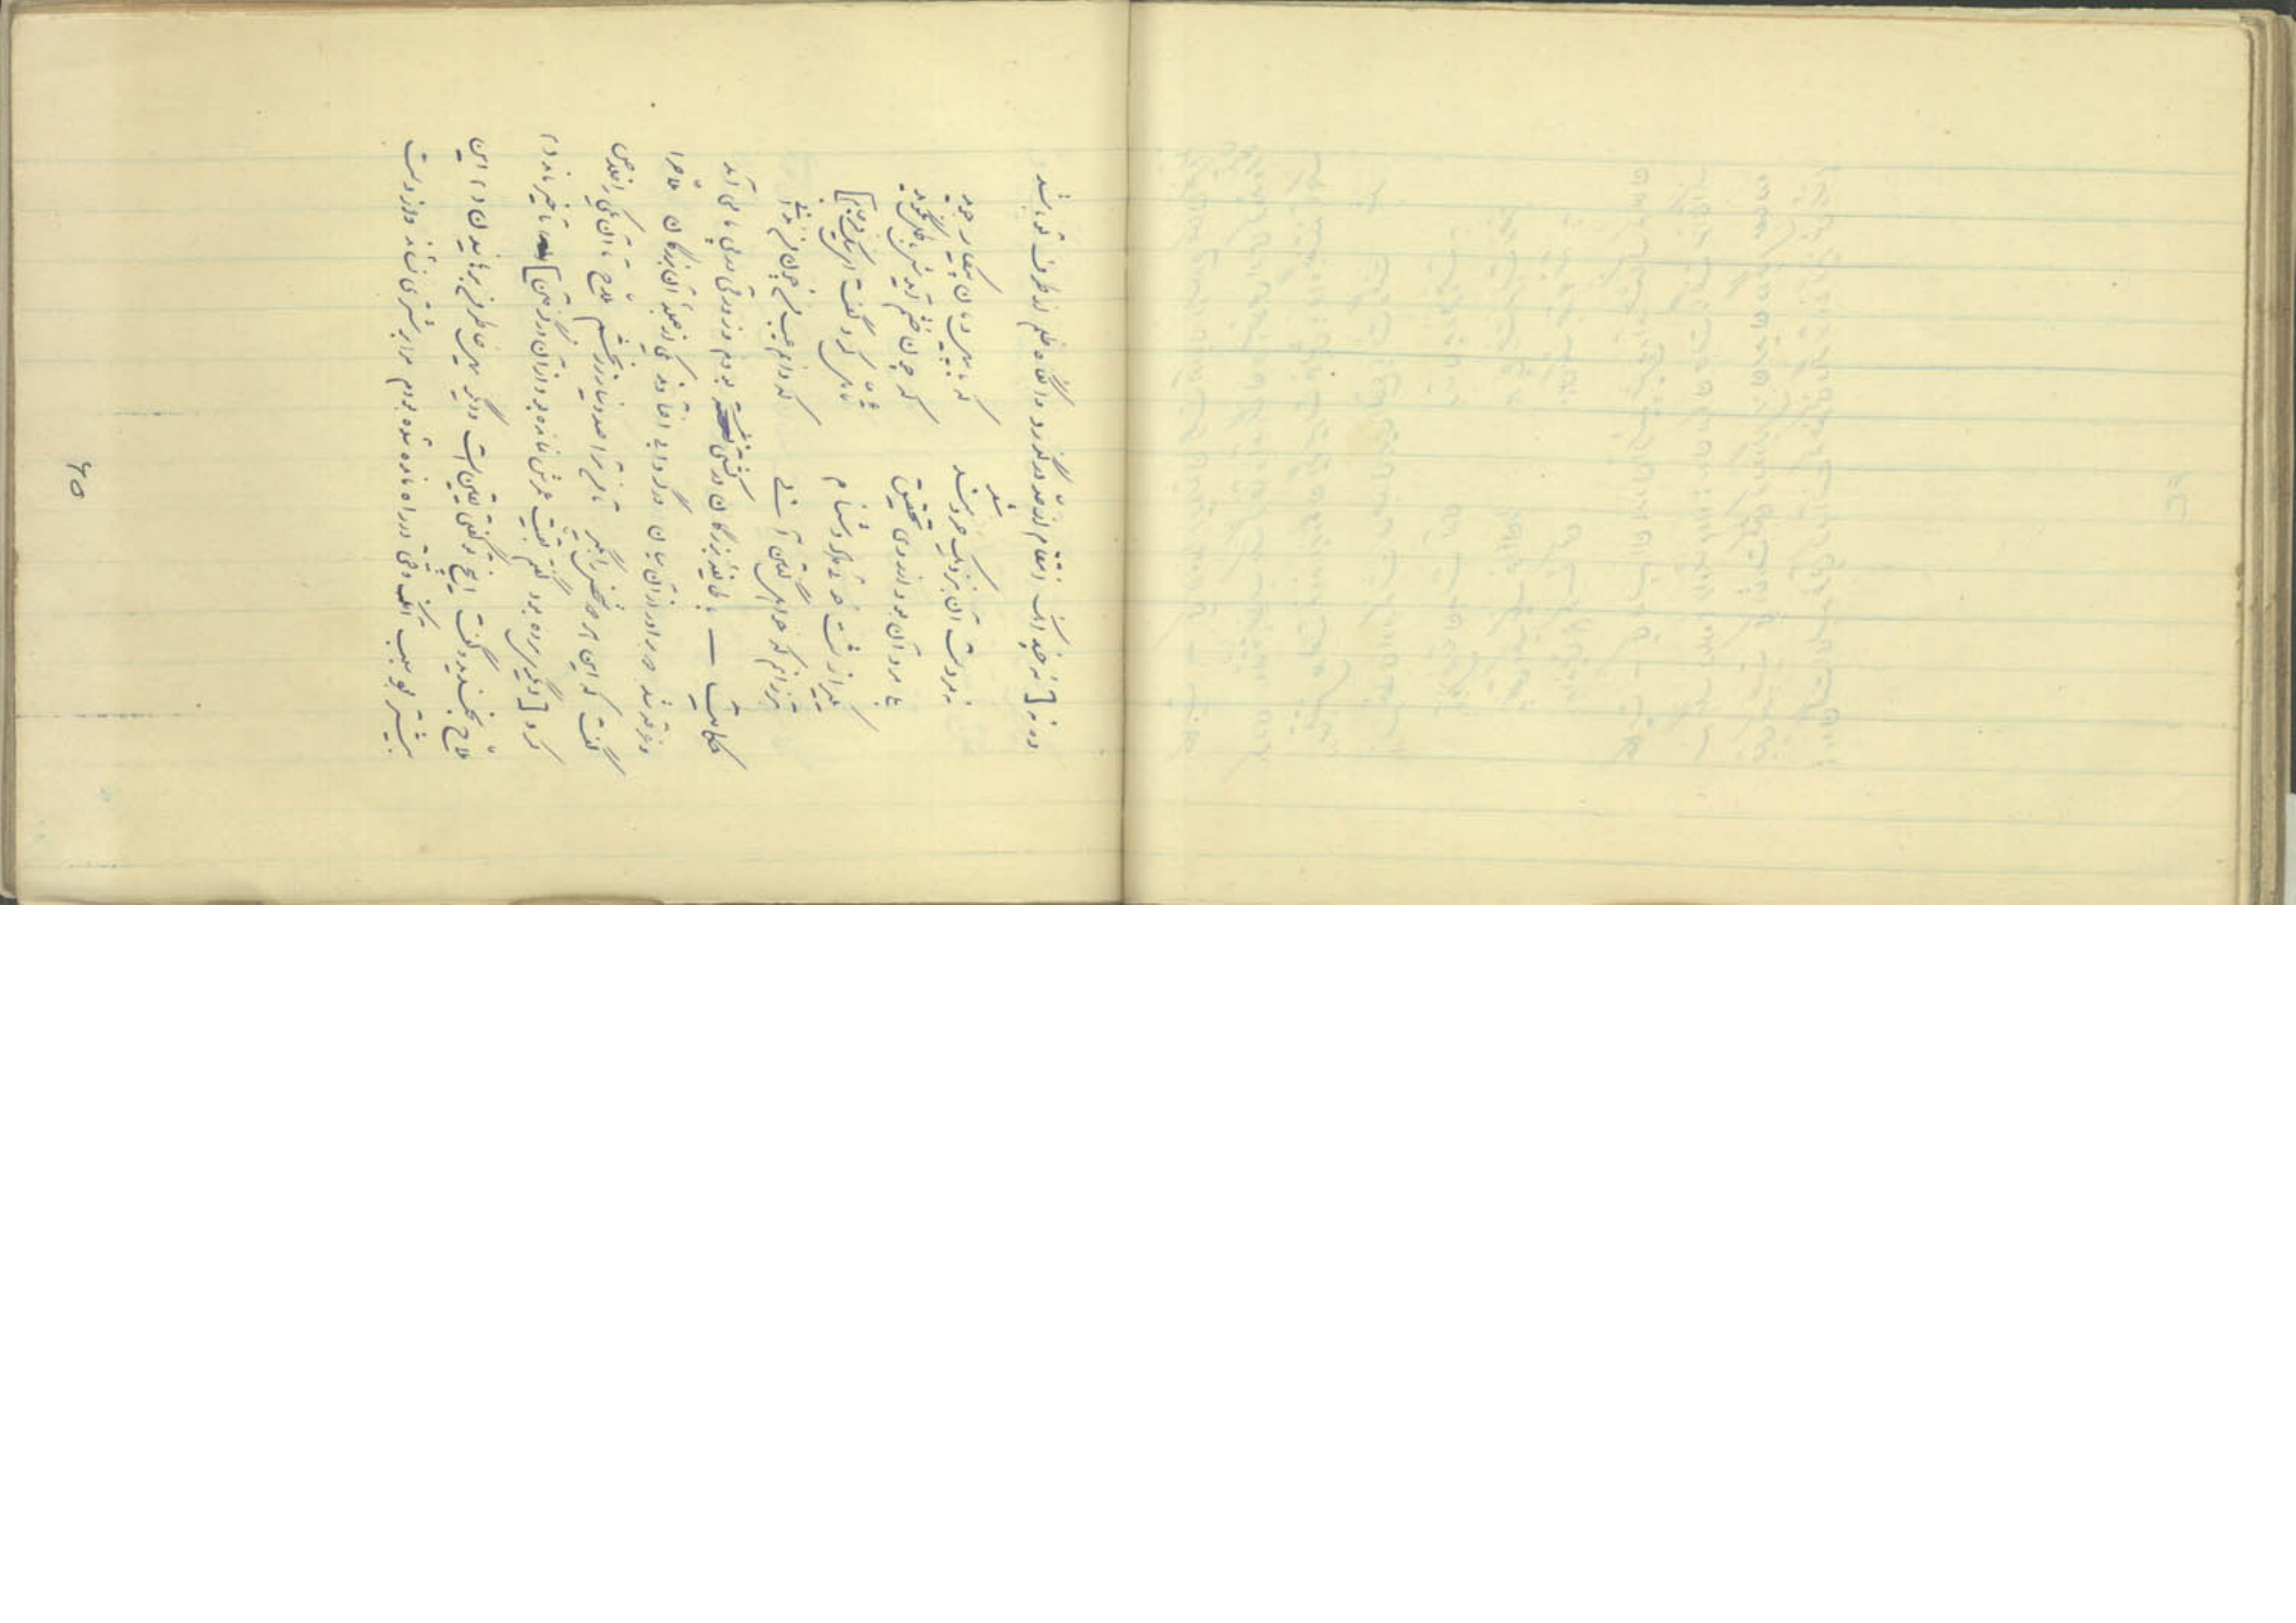 و نه [نه چندانک انتقام از حد در گذرد وانگاه ظلم از طرف تو باشد
نه مردست آن بنزدیک خردمند که با پیل دمان پیکار جوید
بلی مرد آن بود از روی تحقیق که چون خشم آیدش باطل نگوید
یکی را زشت خوئی داد دشنام تحمل کرد و گفت ای نیک فرجام]
بتر زانم که خواهی گفتن آنی که دانم عیب من چون من ندانی
حکایت — با طایفه بزرگان در کشتی نشسته بودم و زورقی در پی ما می آمد
و غرق شد دو برادر از آن میان در گردابی افتادند یکی از جمله آن بزرگان ملاح را
گفت که این هر دو شخص را بگیر تا من ترا صد دینار زر بخشم ملاح تا آن یکی را خلاص
کرد [دیگری مرده بود گفتم بقیت عمرش نمانده بود از آن در گرفتن] تاخیر نمودی
ملاح بخندید و گفت اینچ تو گفتی یقین است و دیگر میل خاطر من برهانیدن این
بیشتر بود بسبب آنک وقتی در راه مانده شده بودم مرا بر شتری نشاند و از دست
۶۵